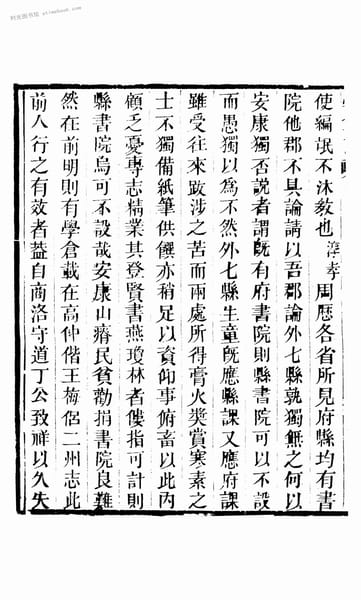 使編氓不沐教也 淳孝 周歷各省所見府縣均有書
院他郡不具論請以吾郡論外七縣孰獨無之何以
安康獨否說者謂既有府書院則縣書院可以不設
而愚獨以為不然外七縣生童既應縣課又應府課
雖受往來跋涉之苦而兩處所得膏火奬賞寒素之
士不獨備紙筆供饌亦稍足以資仰事俯畜以此內
顧乏憂專志精業其登賢書燕瓊林者僂指可計則
縣書院烏可不設哉安康山瘠民貧勸捐書院良難
然在前明則有學倉載在高仲偕王梅侶二州志此
前人行之有效者葢自商洛守道丁公致祥以久失